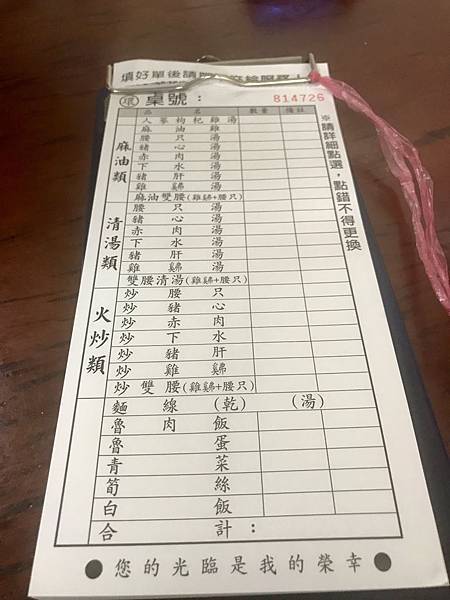 填好單後請
環 桌號：
814726
品名 數量 備註
麻油類
人參枸杞雞湯
麻油雞
腰只湯
豬心湯
赤肉湯
下水湯
豬肝湯
雞 湯
麻油雙腰(雞 +腰只)
清湯類
腰只湯
豬心湯
赤肉湯
下水湯
豬肝湯
雞 湯
雙腰清湯(雞 +腰只)
火炒類
炒腰只
炒豬心
炒赤肉
炒下水
炒豬肝
炒雞
炒雙腰(雞 +腰只)
麵線 (乾) (湯)
魯肉飯
魯蛋
青菜
筍絲
白飯
合計：
※請詳細點選，點錯不得更換
●您的光臨是我的榮幸●